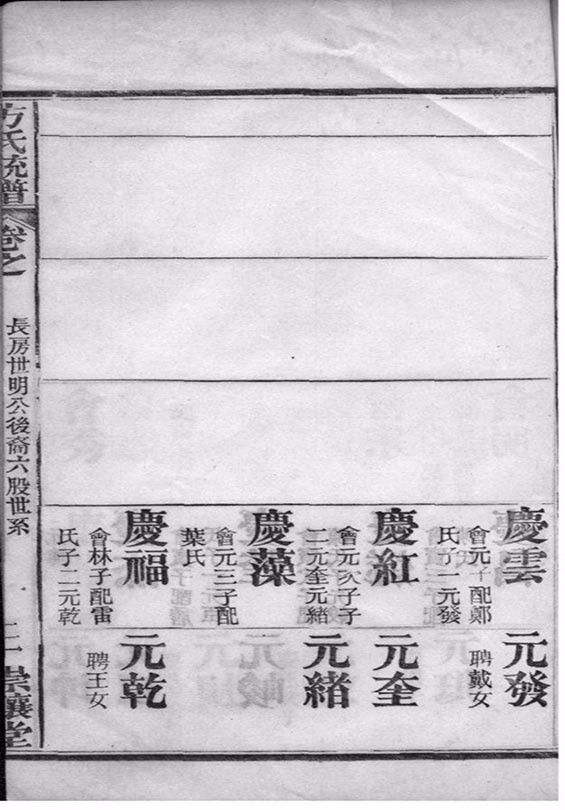 慶雲
會元子配鄭
氏子一元發
慶紅
會元次子子
二元奎元緒
慶藻
會元三子配
葉氏
慶福
會林子配雷
氏子二元乾
元發
聘戴女
元奎
元緒
元乾
聘王女
方氏統譜
卷之
長房世明公後裔六股世系
崇讓堂